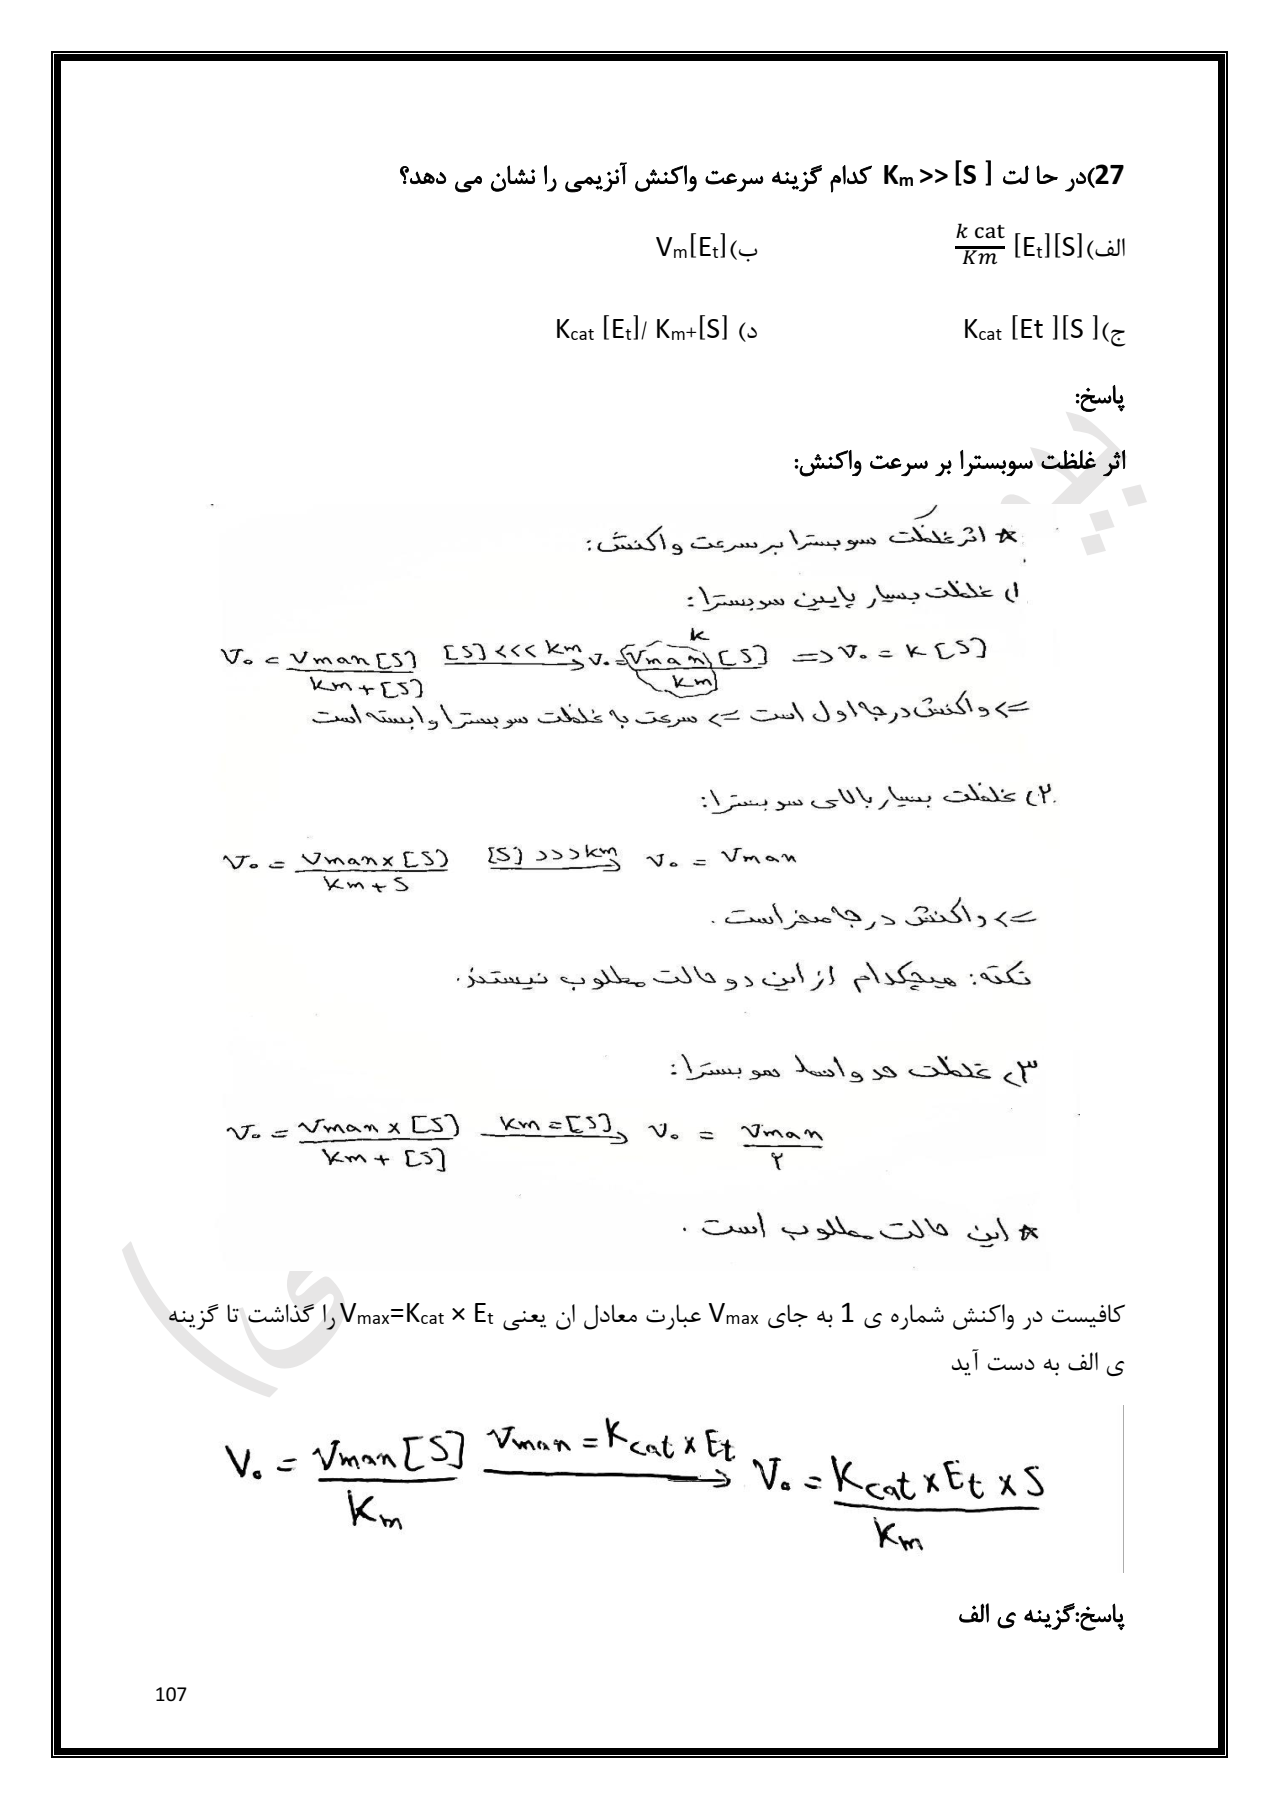 27)در حا لت Km >> [S ] کدام گزینه سرعت واکنش آنزیمی را نشان می دهد؟
الف)k cat/Km [Et][S] ب)Vm[Et]
ج)Kcat [Et ][S ] د) Kcat [Et]/ Km+[S]
پاسخ:
اثر غلظت سوبسترا بر سرعت واکنش:
* اثر غلظت سوبسترا بر سرعت واکنش:
۱) غلظت بسیار پایین سوبسترا:
V₀ = Vman[S]/km+[S] [S] <<< km → V₀ = Vman[S]/km k => V₀ = k[S]
=> واکنش درجه اول است => سرعت به غلظت سوبسترا وابسته است
۲) غلظت بسیار بالای سوبسترا:
V₀ = Vman×[S]/km+S [S] >>> km → V₀ = Vman
=> واکنش درجه صفر است.
نکته: هیچکدام از این دو حالت مطلوب نیستند.
۳) غلظت حد واسط سوبسترا:
V₀ = Vman×[S]/km+[S] km=[S] → V₀ = Vman/۲
* این حالت مطلوب است.
کافیست در واکنش شماره ی 1 به جای Vmax عبارت معادل ان یعنی Vmax=Kcat × Et را گذاشت تا گزینه
ی الف به دست آید
V₀ = Vman[S]/Km Vman = Kcat×Et → V₀ = Kcat×Et×S/Km
پاسخ:گزینه ی الف
107